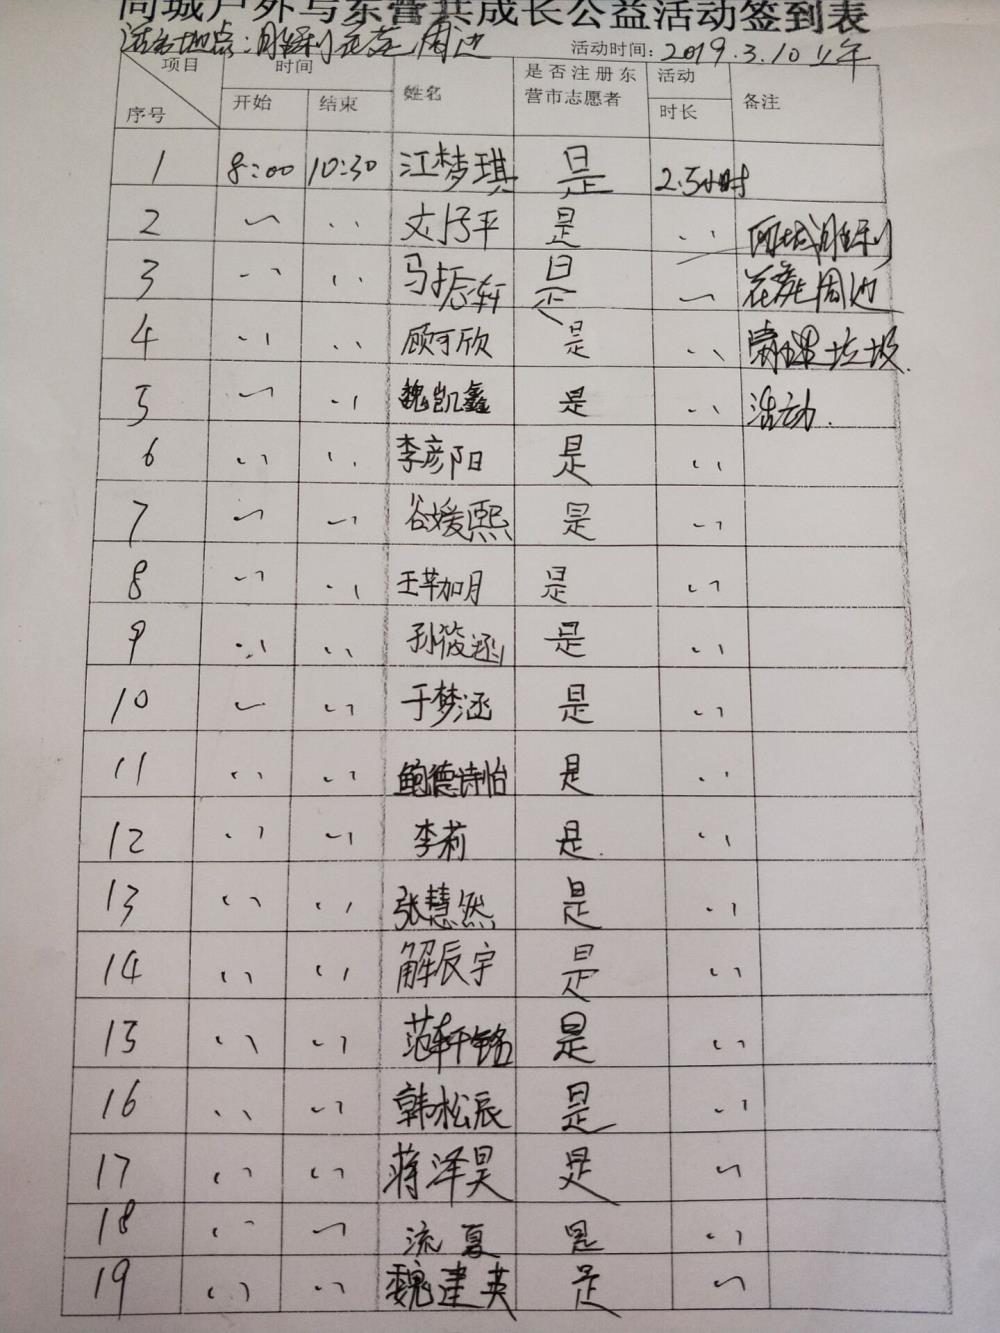 同城户外与东营共成长公益活动签到表
活动地点:胜利花苑周边 活动时间:2019.3.10上午
项目 时间 姓名 是否注册东 活动 备注
序号 开始 结束 营市志愿者 时长
1 8:00 10:30 江梦琪 是 2.5小时
2 是 同城胜利
3 马振轩 是 花苑周边
4 顾可欣 是 清理垃圾
5 魏凯鑫 是 活动.
6 李彦阳 是
7 谷媛熙 是
8 是
9 孙筱涵 是
10 于梦涵 是
11 鲍德诗怡 是
12 李莉 是
13 张慧然 是
14 解辰宇 是
15 范轩铭 是
16 韩松辰 是
17 蒋泽昊 是
18 流夏 是
19 魏建英 是